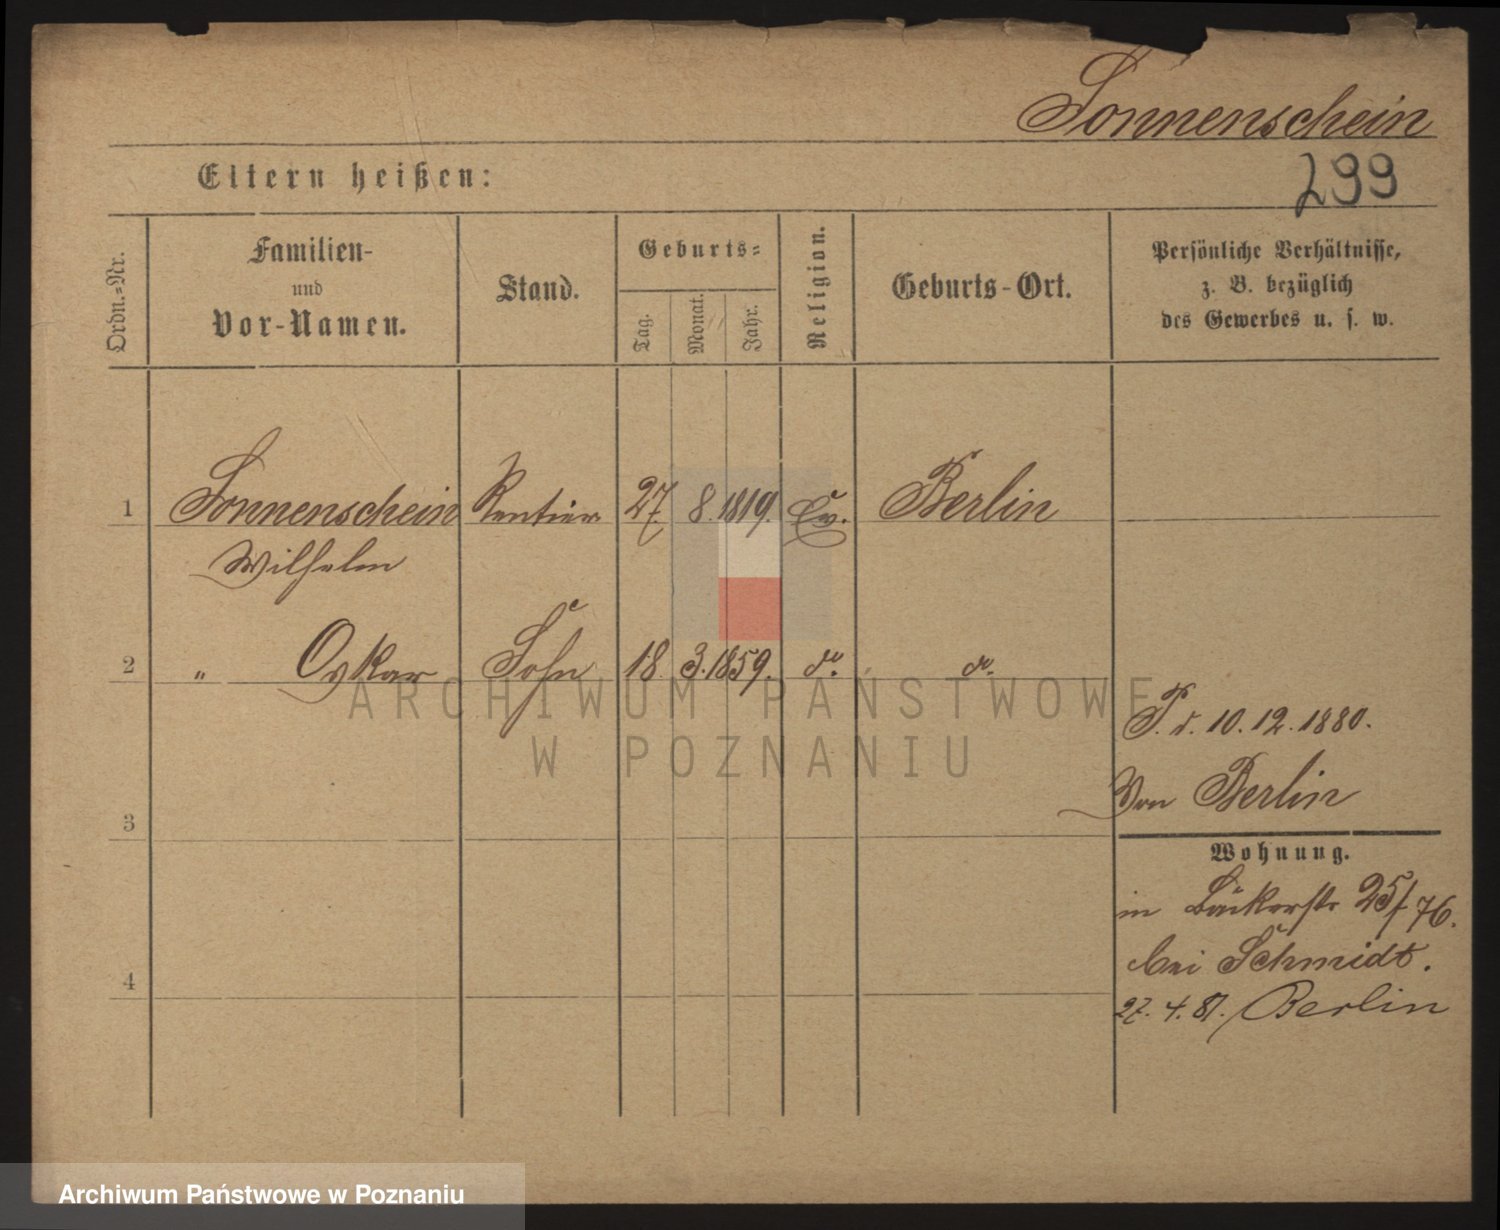 Sonnenschein
Eltern heißen:
299
Ordn.-Nr.
Familien-
und
Vor-Namen.
Stand.
Geburts-
Tag.
Monat.
Jahr.
Religion.
Geburts-Ort.
Persönliche Verhältnisse,
z. B. bezüglich
des Gewerbes u. s. w.
1 Sonnenschein Rentier 27. 8. 1819. Ev. Berlin
Wilhelm
2 " Oskar Sohn 18. 3. 1859. do. do.
ARCHIWUM PAŃSTWOWE
W POZNANIU
P. v. 10. 12. 1880.
Von Berlin
3
Wohnung.
in Bäckerstr 25/76.
bei Schmidt.
4
27. 4. 81. Berlin
Archiwum Państwowe w Poznaniu